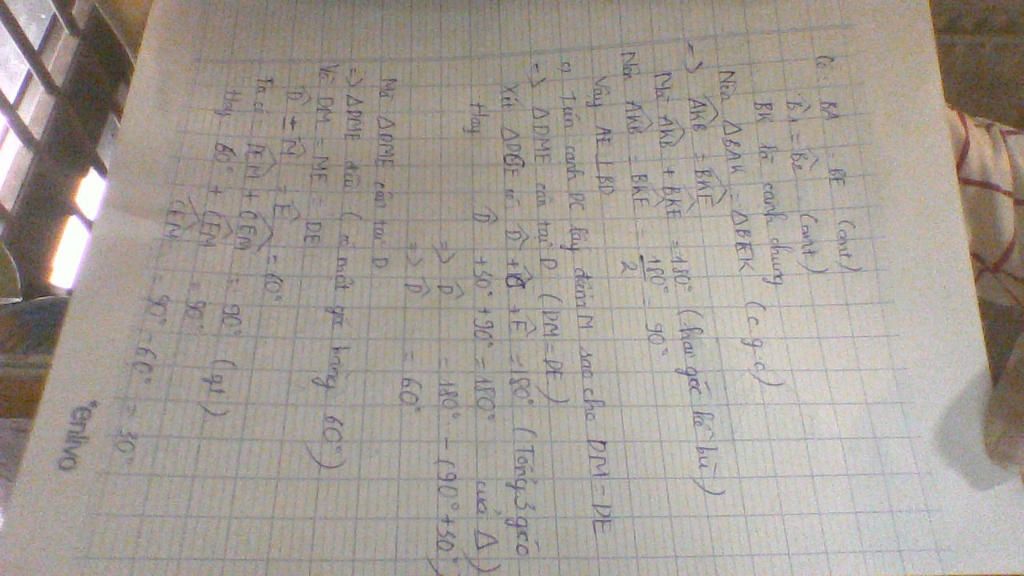 Có: BA = BE (cmt)
B̂₁ = B̂₂ (cmt)
BK là cạnh chung
Nên ΔBAK = ΔBEK (c.g.c)
=> AKB = BKE
Mà AKB + BKE = 180° (hai góc kề bù)
Nên AKB = BKE = 180°/2 = 90°
Vậy AE ⊥ BD
Trên cạnh DC lấy điểm M sao cho DM = DE
=> ΔDME cân tại D (DM = DE)
Xét ΔDCE có D̂ + Ĉ + Ê = 180° (Tổng 3 góc của Δ)
Hay D̂ + 30° + 90° = 180°
=> D̂ = 180° - (90° + 30°)
=> D̂ = 60°
Mà ΔDME cân tại D
=> ΔDME đều (có một góc bằng 60°)
Vì DM = ME = DE
D̂ = M̂ = Ê = 60°
Ta có: DEM + CEM = 90° (gt)
Hay 60° + CEM = 90°
CEM = 90° - 60° = 30°